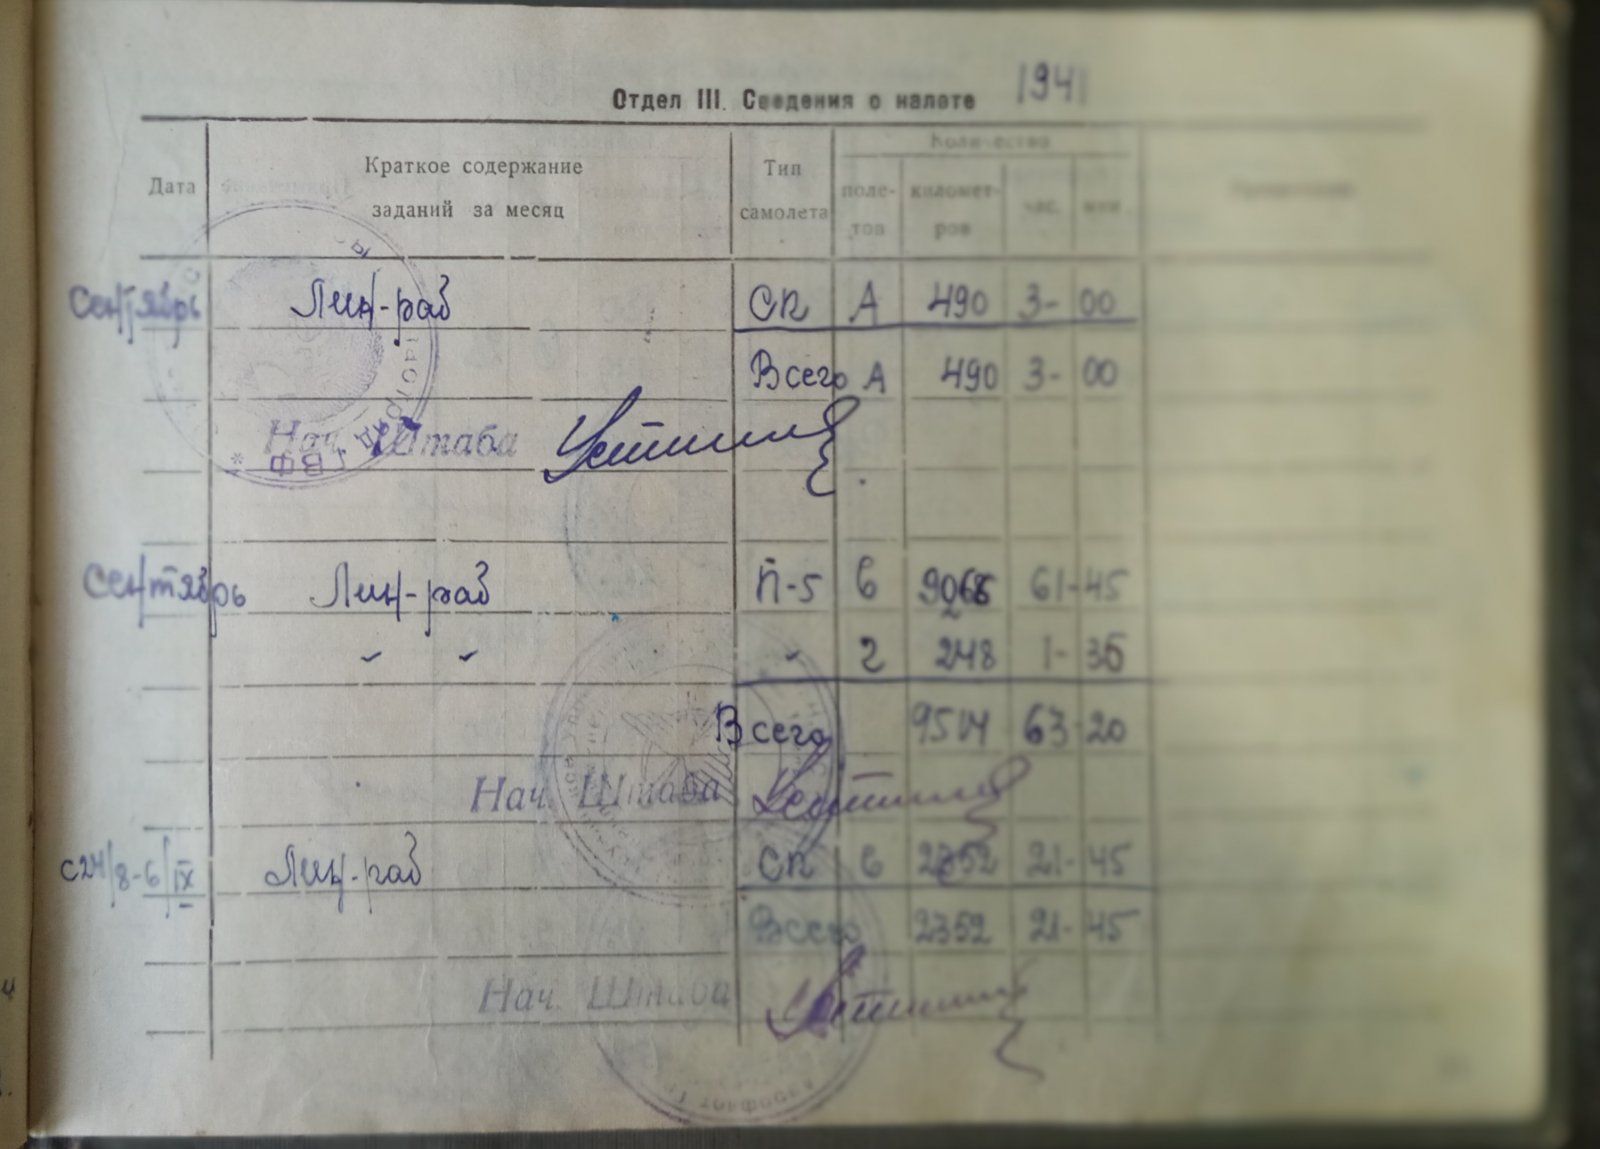 Отдел III. Сведения о налете 1941
Дата Краткое содержание заданий за месяц Тип самолета Количество
поле- тов километ- ров час. мин.
Сентябрь Лин-раб СП А 490 3- 00
Всего А 490 3- 00
Нач. Штаба
Сентябрь Лин-раб П-5 6 61-45
" " " 2 248 1- 35
Всего 9514 63-20
Нач. Штаба
с 24/8-6/IX Лин-раб СП 6 2352 21-45
Всего 2352 21-45
Нач. Штаба